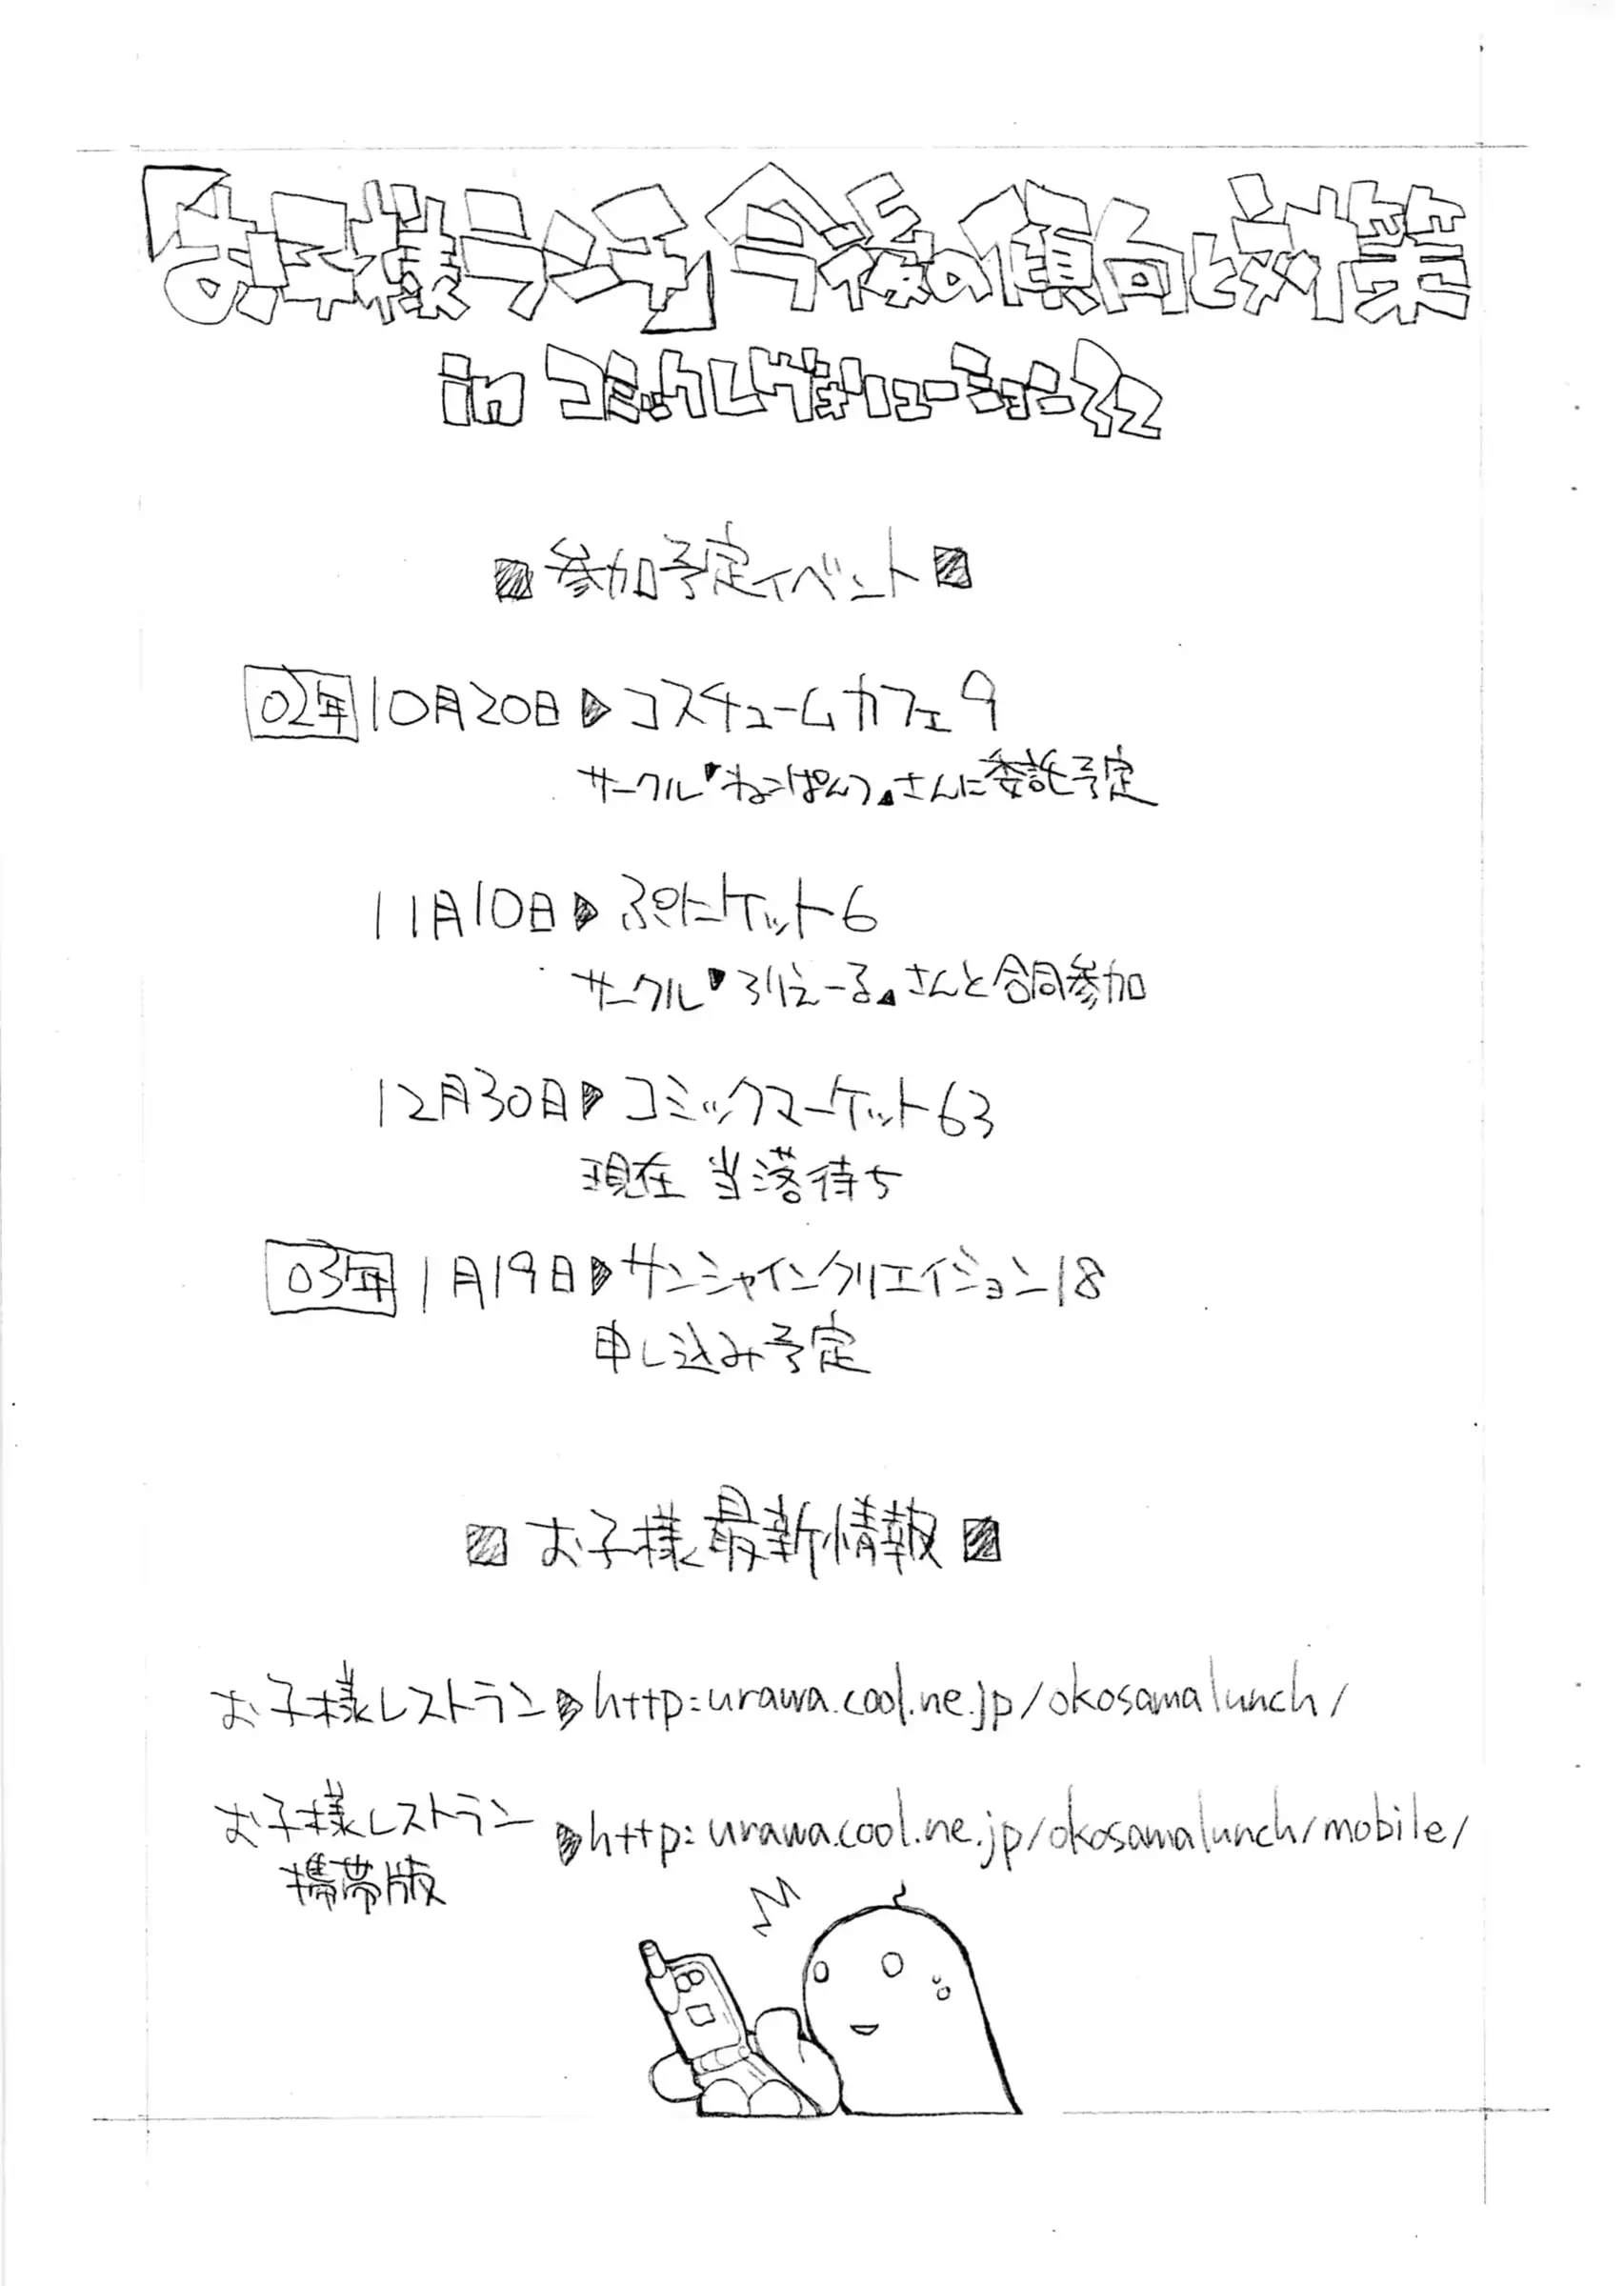 『お子様ランチ』今後の傾向と対策
in コミックレヴォリューション32
■参加予定イベント■
02年 10月20日▶コスチュームカフェ9
サークル『ねこぱんつ』さんに委託予定
11月10日▶ぷにケット6
サークル『ろりえーる』さんと合同参加
12月30日▶コミックマーケット63
現在 当落待ち
03年 1月19日▶サンシャインクリエイション18
申し込み予定
■お子様最新情報■
お子様レストラン▶http:urawa.cool.ne.jp/okosamalunch/
お子様レストラン▶http:urawa.cool.ne.jp/okosamalunch/mobile/
携帯版